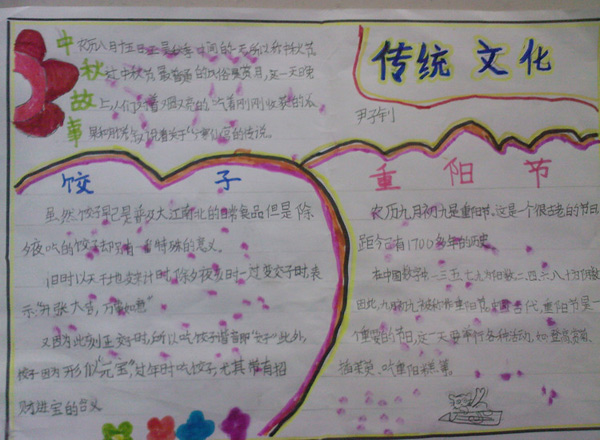 中秋故事
农历八月十五日正是秋季中间的一天所以称中秋节
中秋节最普通的风俗是赏月,这一天晚
上人们对着明亮的 吃着刚刚收获的瓜
果和月饼 说着关于 的传说。
传统 文化
饺 子
虽然饺子早已是 大江南北的日常食品但是除
夕夜吃的饺子却另有一番特殊的意义。
旧时以天干地支计时,除夕夜亥时一过 交子时表
示"开张大吉,万事如意"
又因为此刻正交子时,所以吃饺子皆音即"交子"此外,
饺子因为形似"元宝",过年时吃饺子,尤其带有招
财进宝的含义
重 阳 节
农历九月初九是重阳节,这是个很古老的节日
距今已有1700多年的历史
在中国数字中一三五七九为阳数,二四六八十为阴数
因此,九月初九被称作重阳节, 古代,重阳节是一
个重要的节日,这一天要举行各种活动,如登高赏菊、
插茱萸、吃重阳糕等。